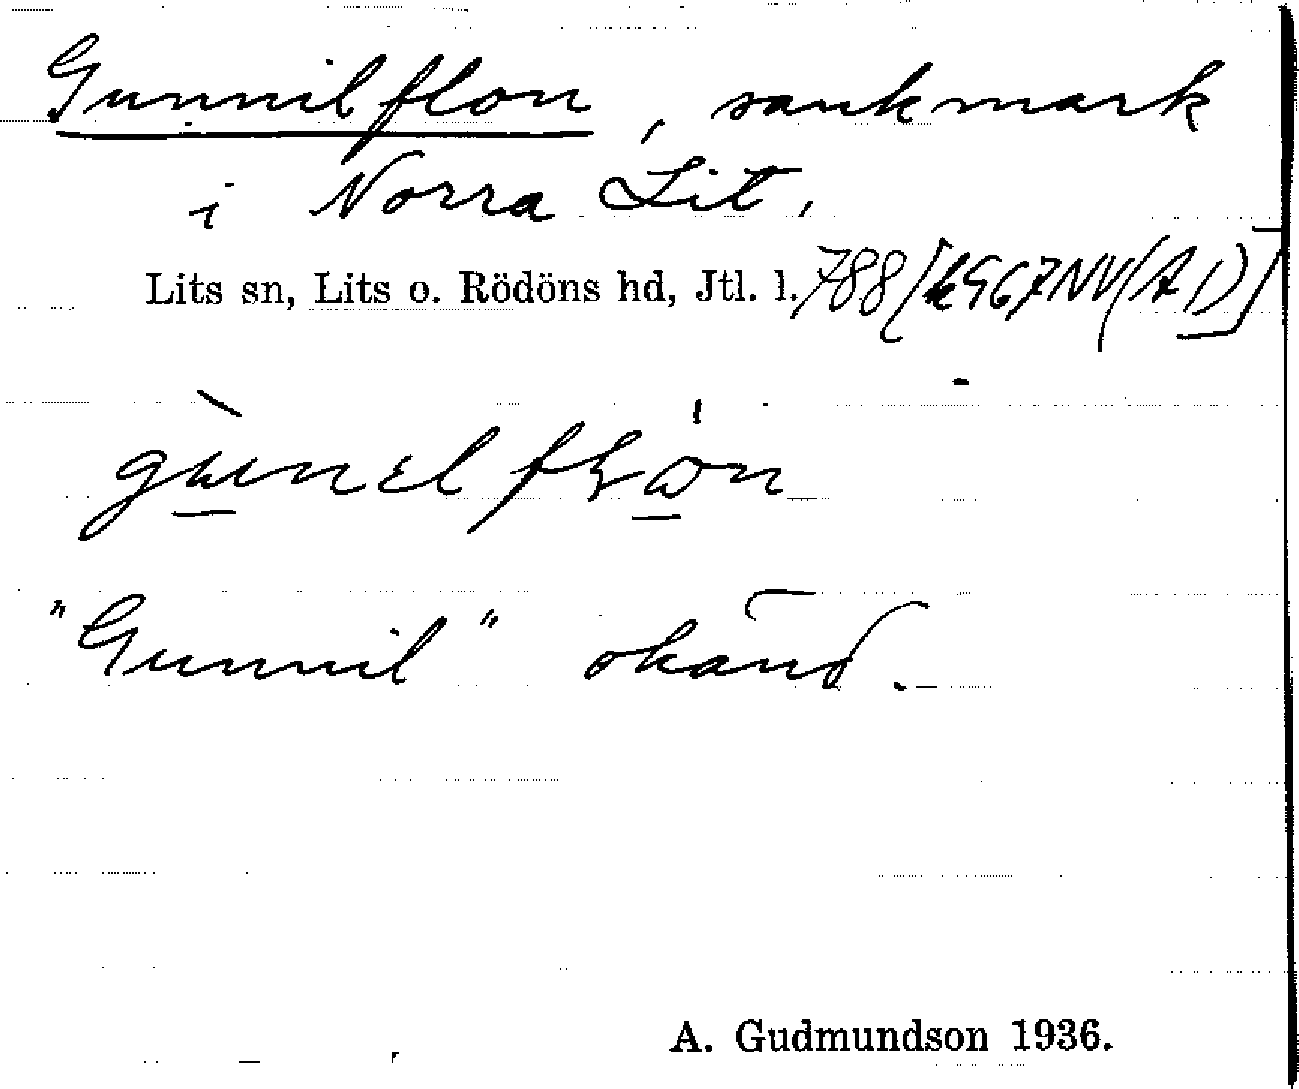 Gunnilflon, sankmark
i Norra Lit,
Lits sn, Lits o. Rödöns hd, Jtl. l. 788
"Gunnil" okänd.
A. Gudmundson 1936.